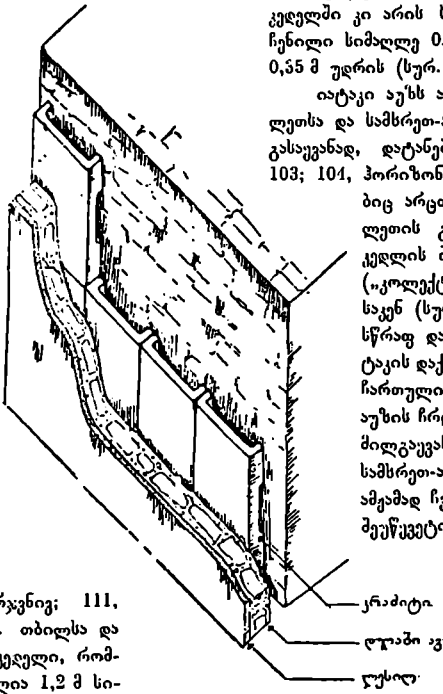 კედელში კი არის
ჩენილი სიმაღლე 0.
0,55 მ უდრის (სურ.
იატაკი აუზს
ლეთსა და სამხრეთ-
გასაყვანად, დატანებ
103; 104, ჰორიზონ
ბიც არცთ
ლეთის გ
კედლის
(„კოლექტ
საკენ (სურ
სწრაფ და
ტაკის დაქ
ჩართული
აუზის ჩრდ
მილგაყვან
სამხრეთ-ა
ამჟამად ჩვ
შეუწყვეტ
კრამიტი
დუღაბი აგ
ლესილ
რჯვნივ; 111,
თბილსა და
კედელი, რომ-
ლია 1,2 მ სი-